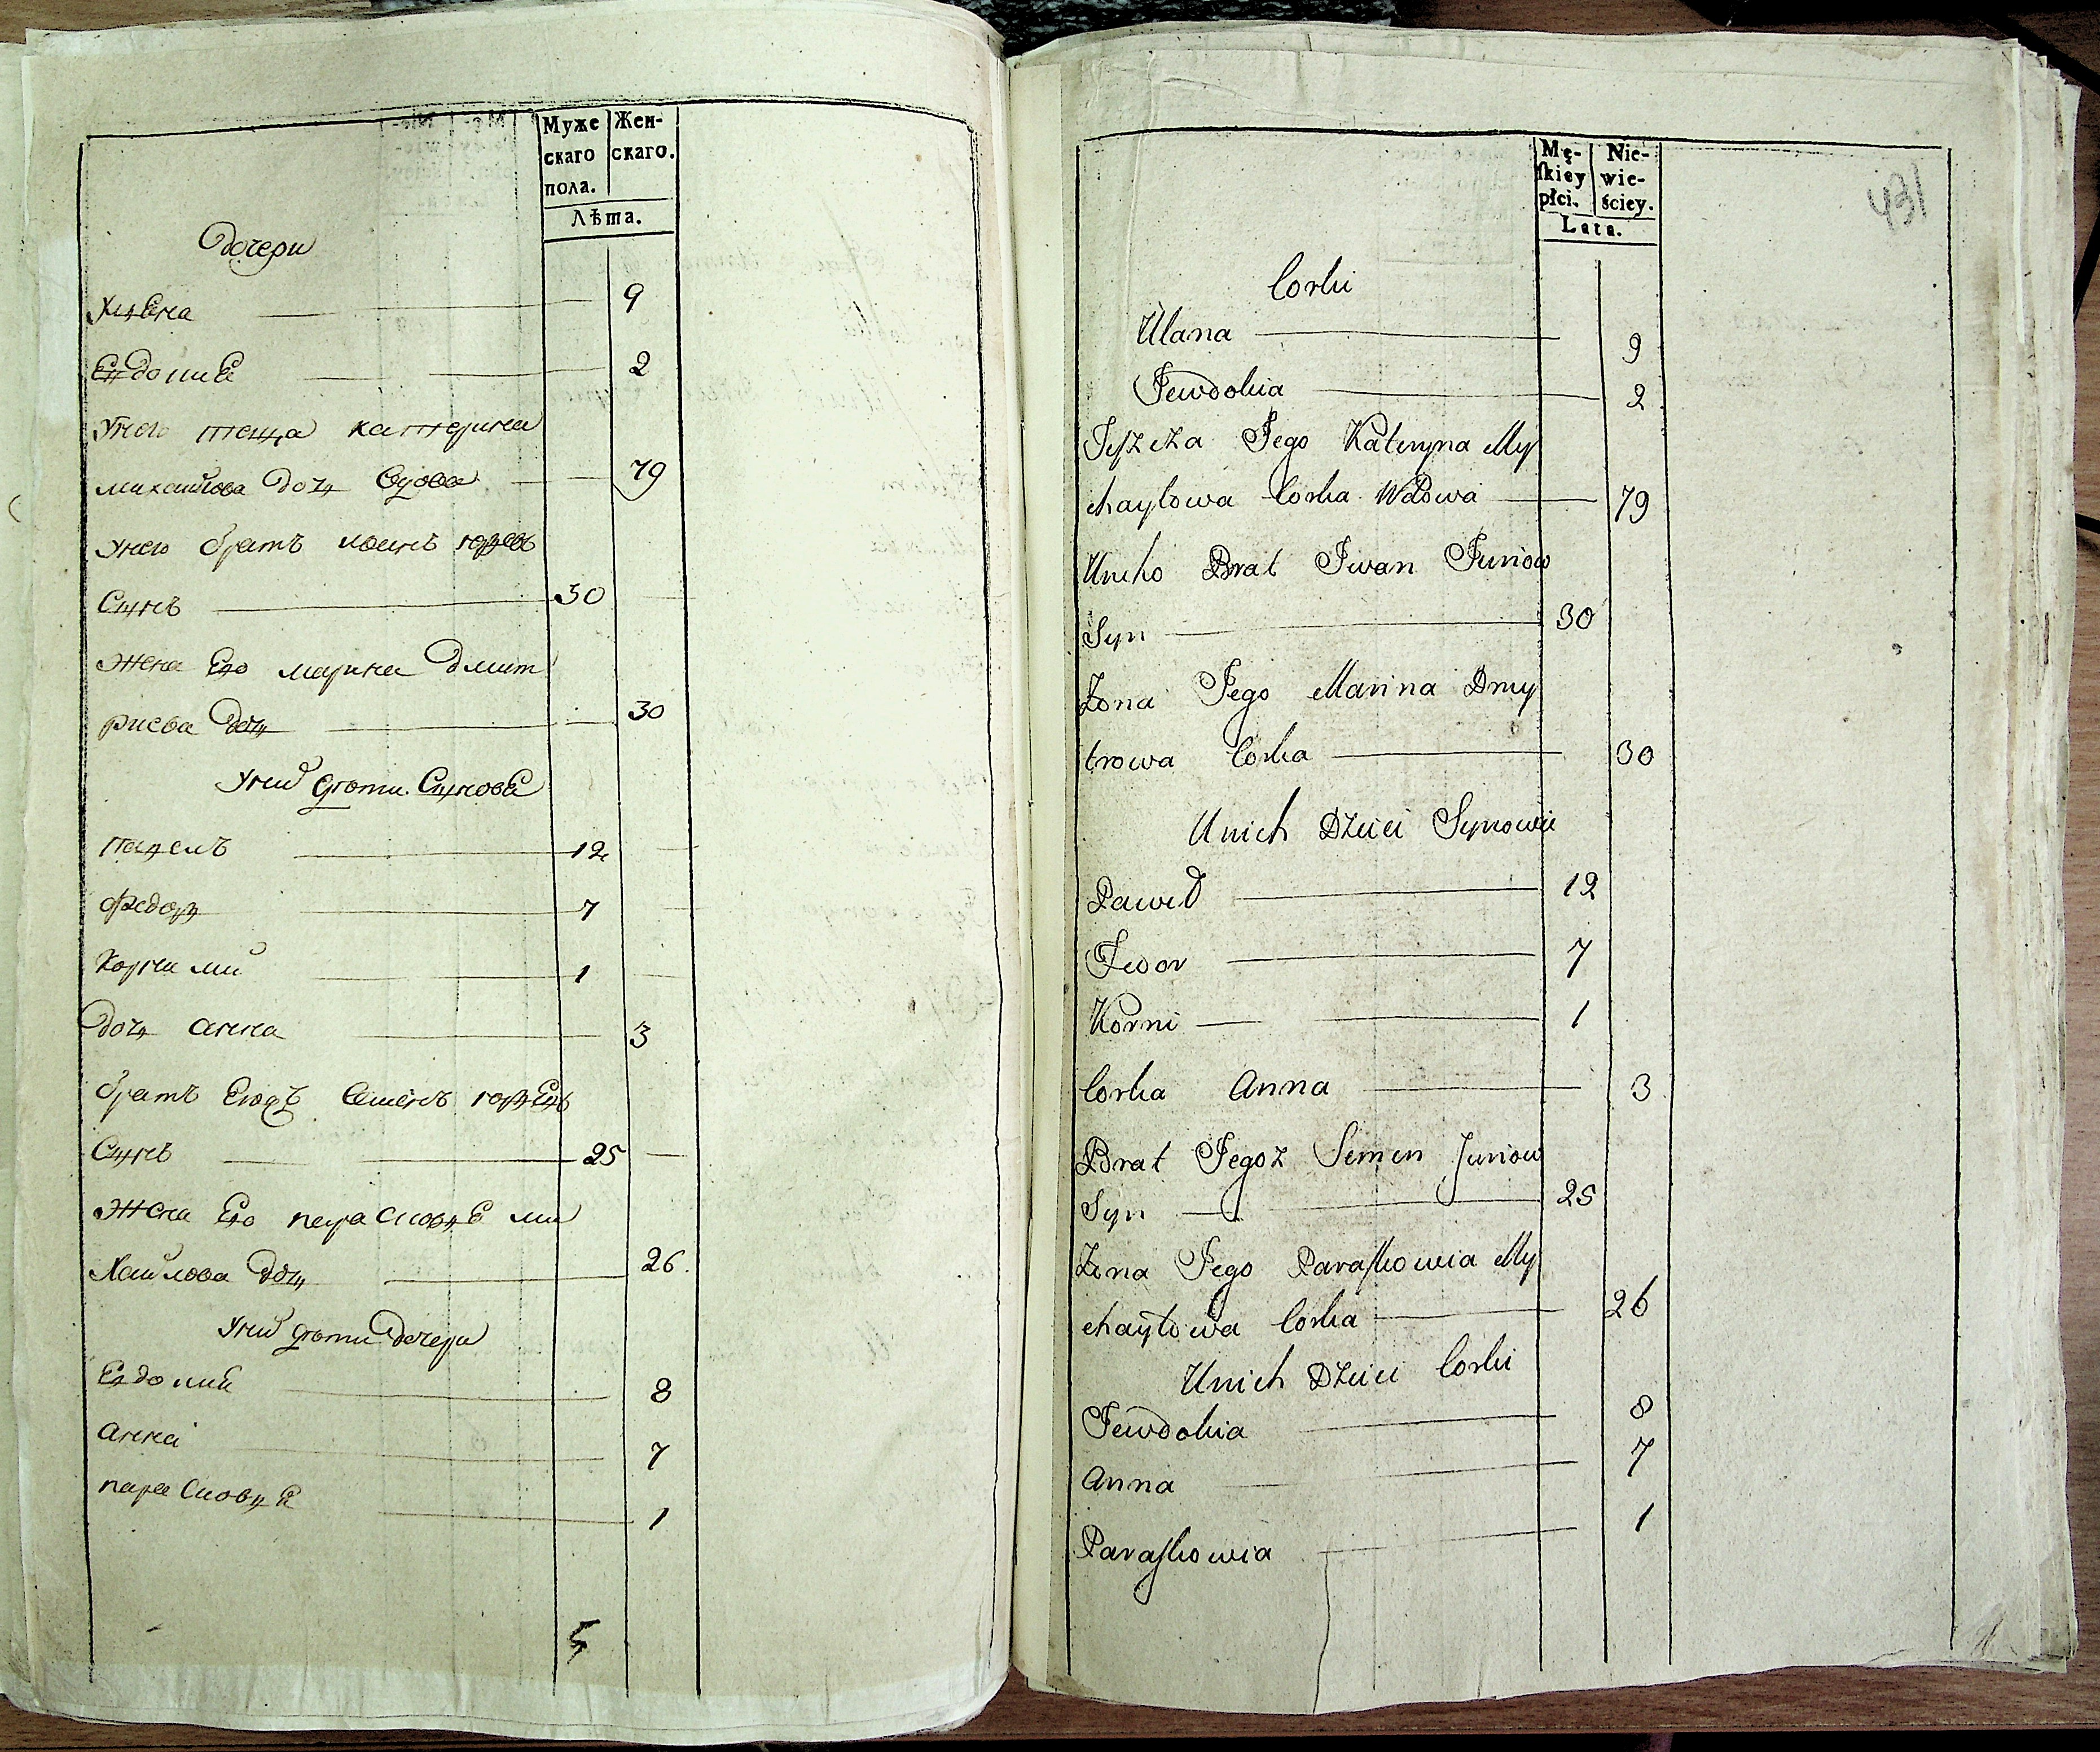 Муже Жен-
скаго скаго.
пола.
Лѣта.
Дочери
Уляна 9
Евдокия 2
Унего теща катерина
михайлова дочь вдова 79
унего братъ иванъ юрьевъ
Сынъ 30
жена Его марина дмит
риева дочь 30
Уних дѣти Сыновя
павелъ 12
федоръ 7
Корнилий 1
дочь анна 3
братъ Егожъ Семенъ юрьевъ
Сынъ 25
жена Его парасковья ми
хайлова дочь 26.
Уних дѣти дочери
Евдокия 8
анна 7
парасковья 1
5
431
Mę- Nie-
skiey wie-
płci. ściey.
Lata.
Corki
Ulana 9
Jewdokia 2
Teszcza Jego Kateryna My
chayłowa Corka Wdowa 79
Uneho Brat Iwan Juriow
Syn 30
Żona Jego Marina Dmy
trowa Corka 30
Unich Dzieci Synowie
Paweł 12
Fedor 7
Korni 1
Corka Anna 3
Brat Jegoz Semen Juriow
Syn 25
Żona Jego Paraskowia My
chayłowa Corka 26
Unich Dzieci Corki
Jewdokia 8
Anna 7
Paraskowia 1